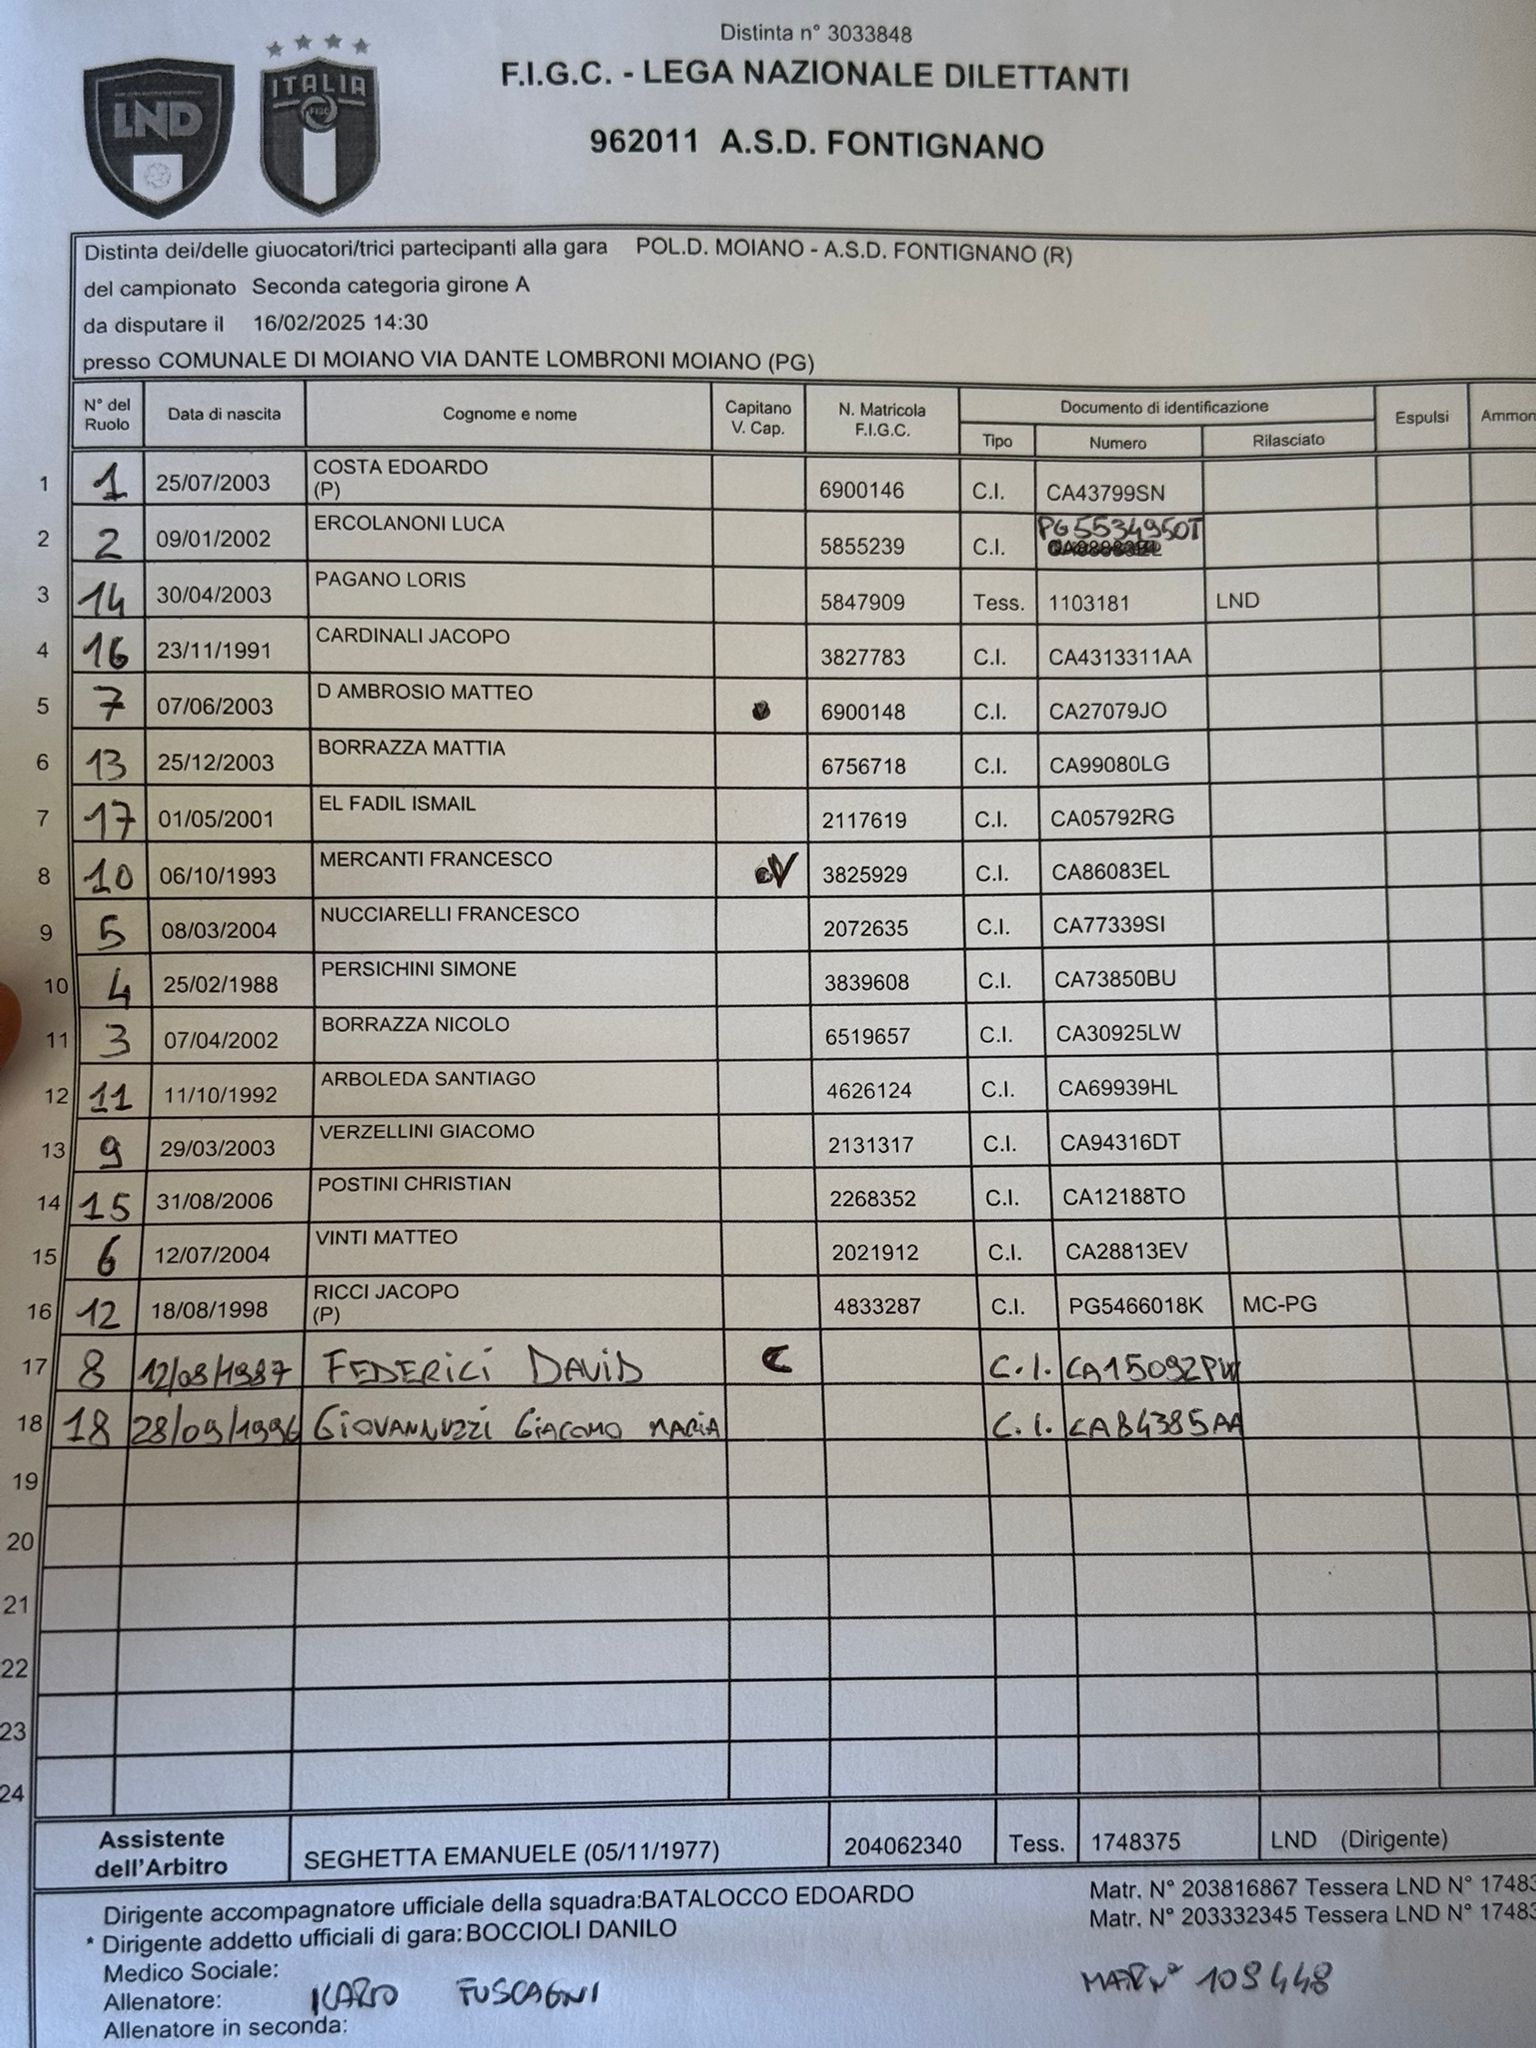 Distinta n° 3033848
LND
ITALIA
FIGC
F.I.G.C. - LEGA NAZIONALE DILETTANTI
962011 A.S.D. FONTIGNANO
Distinta dei/delle giuocatori/trici partecipanti alla gara POL.D. MOIANO - A.S.D. FONTIGNANO (R)
del campionato Seconda categoria girone A
da disputare il 16/02/2025 14:30
presso COMUNALE DI MOIANO VIA DANTE LOMBRONI MOIANO (PG)
N° del Ruolo Data di nascita Cognome e nome Capitano V. Cap. N. Matricola F.I.G.C. Documento di identificazione Espulsi Ammon
Tipo Numero Rilasciato
1 1 25/07/2003 COSTA EDOARDO (P) 6900146 C.I. CA43799SN
2 2 09/01/2002 ERCOLANONI LUCA 5855239 C.I. PG5534950T
3 14 30/04/2003 PAGANO LORIS 5847909 Tess. 1103181 LND
4 16 23/11/1991 CARDINALI JACOPO 3827783 C.I. CA4313311AA
5 7 07/06/2003 D AMBROSIO MATTEO 6900148 C.I. CA27079JO
6 13 25/12/2003 BORRAZZA MATTIA 6756718 C.I. CA99080LG
7 17 01/05/2001 EL FADIL ISMAIL 2117619 C.I. CA05792RG
8 10 06/10/1993 MERCANTI FRANCESCO V 3825929 C.I. CA86083EL
9 5 08/03/2004 NUCCIARELLI FRANCESCO 2072635 C.I. CA77339SI
10 4 25/02/1988 PERSICHINI SIMONE 3839608 C.I. CA73850BU
11 3 07/04/2002 BORRAZZA NICOLO 6519657 C.I. CA30925LW
12 11 11/10/1992 ARBOLEDA SANTIAGO 4626124 C.I. CA69939HL
13 9 29/03/2003 VERZELLINI GIACOMO 2131317 C.I. CA94316DT
14 15 31/08/2006 POSTINI CHRISTIAN 2268352 C.I. CA12188TO
15 6 12/07/2004 VINTI MATTEO 2021912 C.I. CA28813EV
16 12 18/08/1998 RICCI JACOPO (P) 4833287 C.I. PG5466018K MC-PG
17 8 FEDERICI DAVID C C.I. CA15092PW
18 18 28/09/1996 GIOVANNUZZI GIACOMO MARIA C.I. CA84385AA
19
20
21
22
23
24
Assistente dell'Arbitro SEGHETTA EMANUELE (05/11/1977) 204062340 Tess. 1748375 LND (Dirigente)
Dirigente accompagnatore ufficiale della squadra:BATALOCCO EDOARDO Matr. N° 203816867 Tessera LND N° 17483
* Dirigente addetto ufficiali di gara:BOCCIOLI DANILO Matr. N° 203332345 Tessera LND N° 17483
Medico Sociale:
Allenatore: ICARO FUSCAGNI MATR N° 109448
Allenatore in seconda: